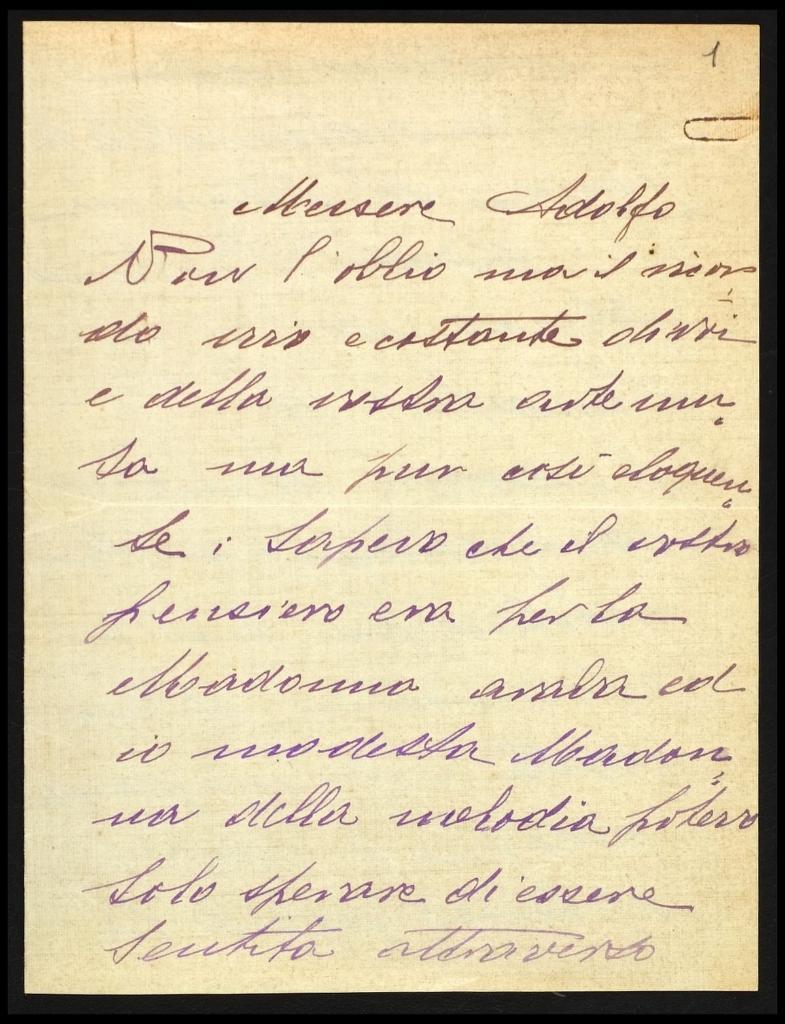 1
Messere Adolfo
Non l'oblio ma il ricor-
do vivo e costante di voi
e della vostra arte mu-
ta ma pur così eloquen-
te; sapevo che il vostro
pensiero era per la
Madonna araba ed
io modesta Madon-
na della melodia potevo
solo sperare di essere
sentita attraverso